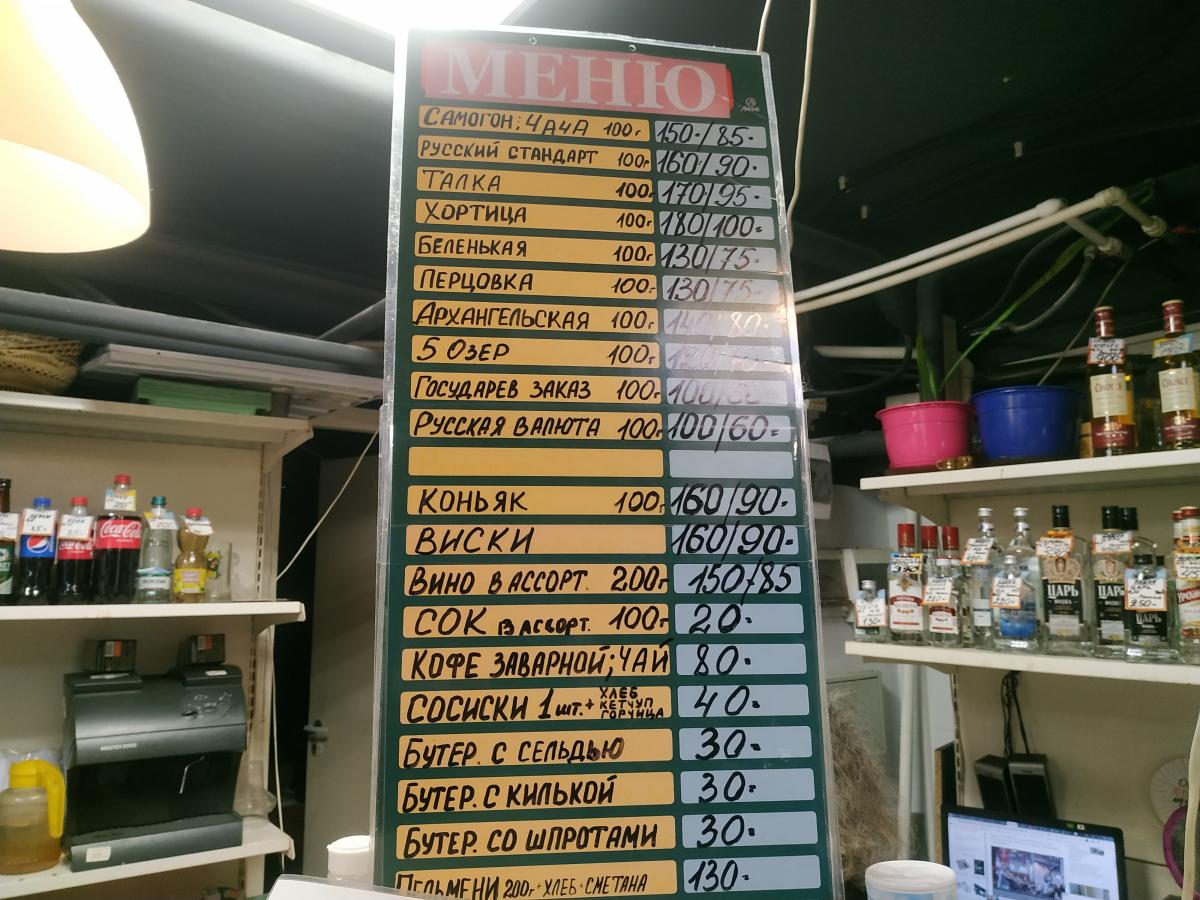 МЕНЮ
САМОГОН; ЧАЧА 100г 150-/85-
РУССКИЙ СТАНДАРТ 100г 160/90-
ТАЛКА 100г 170/95-
ХОРТИЦА 100г 180/100-
БЕЛЕНЬКАЯ 100г 130/75-
ПЕРЦОВКА 100г 130/75-
АРХАНГЕЛЬСКАЯ 100г 140/80-
5 ОЗЕР 100г
ГОСУДАРЕВ ЗАКАЗ 100г 100/60-
РУССКАЯ ВАЛЮТА 100г 100/60-
КОНЬЯК 100г 160/90-
ВИСКИ 160/90-
ВИНО В АССОРТ. 200г 150/85
СОК В АССОРТ. 100г 20-
КОФЕ ЗАВАРНОЙ; ЧАЙ 80-
СОСИСКИ 1 шт. + ХЛЕБ КЕТЧУП ГОРЧИЦА 40-
БУТЕР. С СЕЛЬДЬЮ 30-
БУТЕР. С КИЛЬКОЙ 30-
БУТЕР. СО ШПРОТАМИ 30-
ПЕЛЬМЕНИ 200г + ХЛЕБ + СМЕТАНА 130-
Coca-Cola
ЦАРЬ
ЦАРЬ